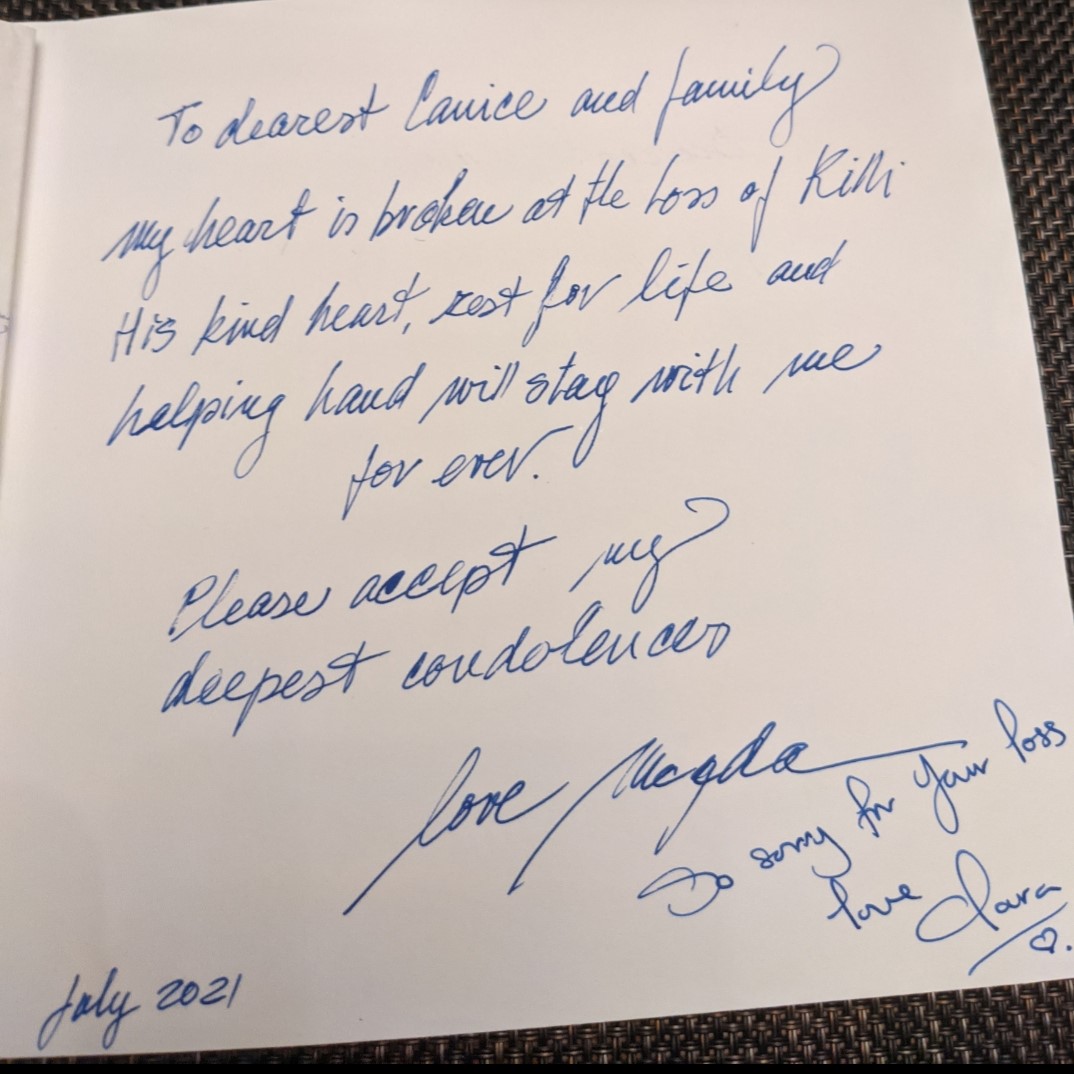 To dearest Canice and family
my heart is broken at the loss of Killi
His kind heart, zest for life and
helping hand will stay with me
for ever.
Please accept my
deepest condolences
love Magda
So sorry for your loss
love Clara
♡.
July 2021